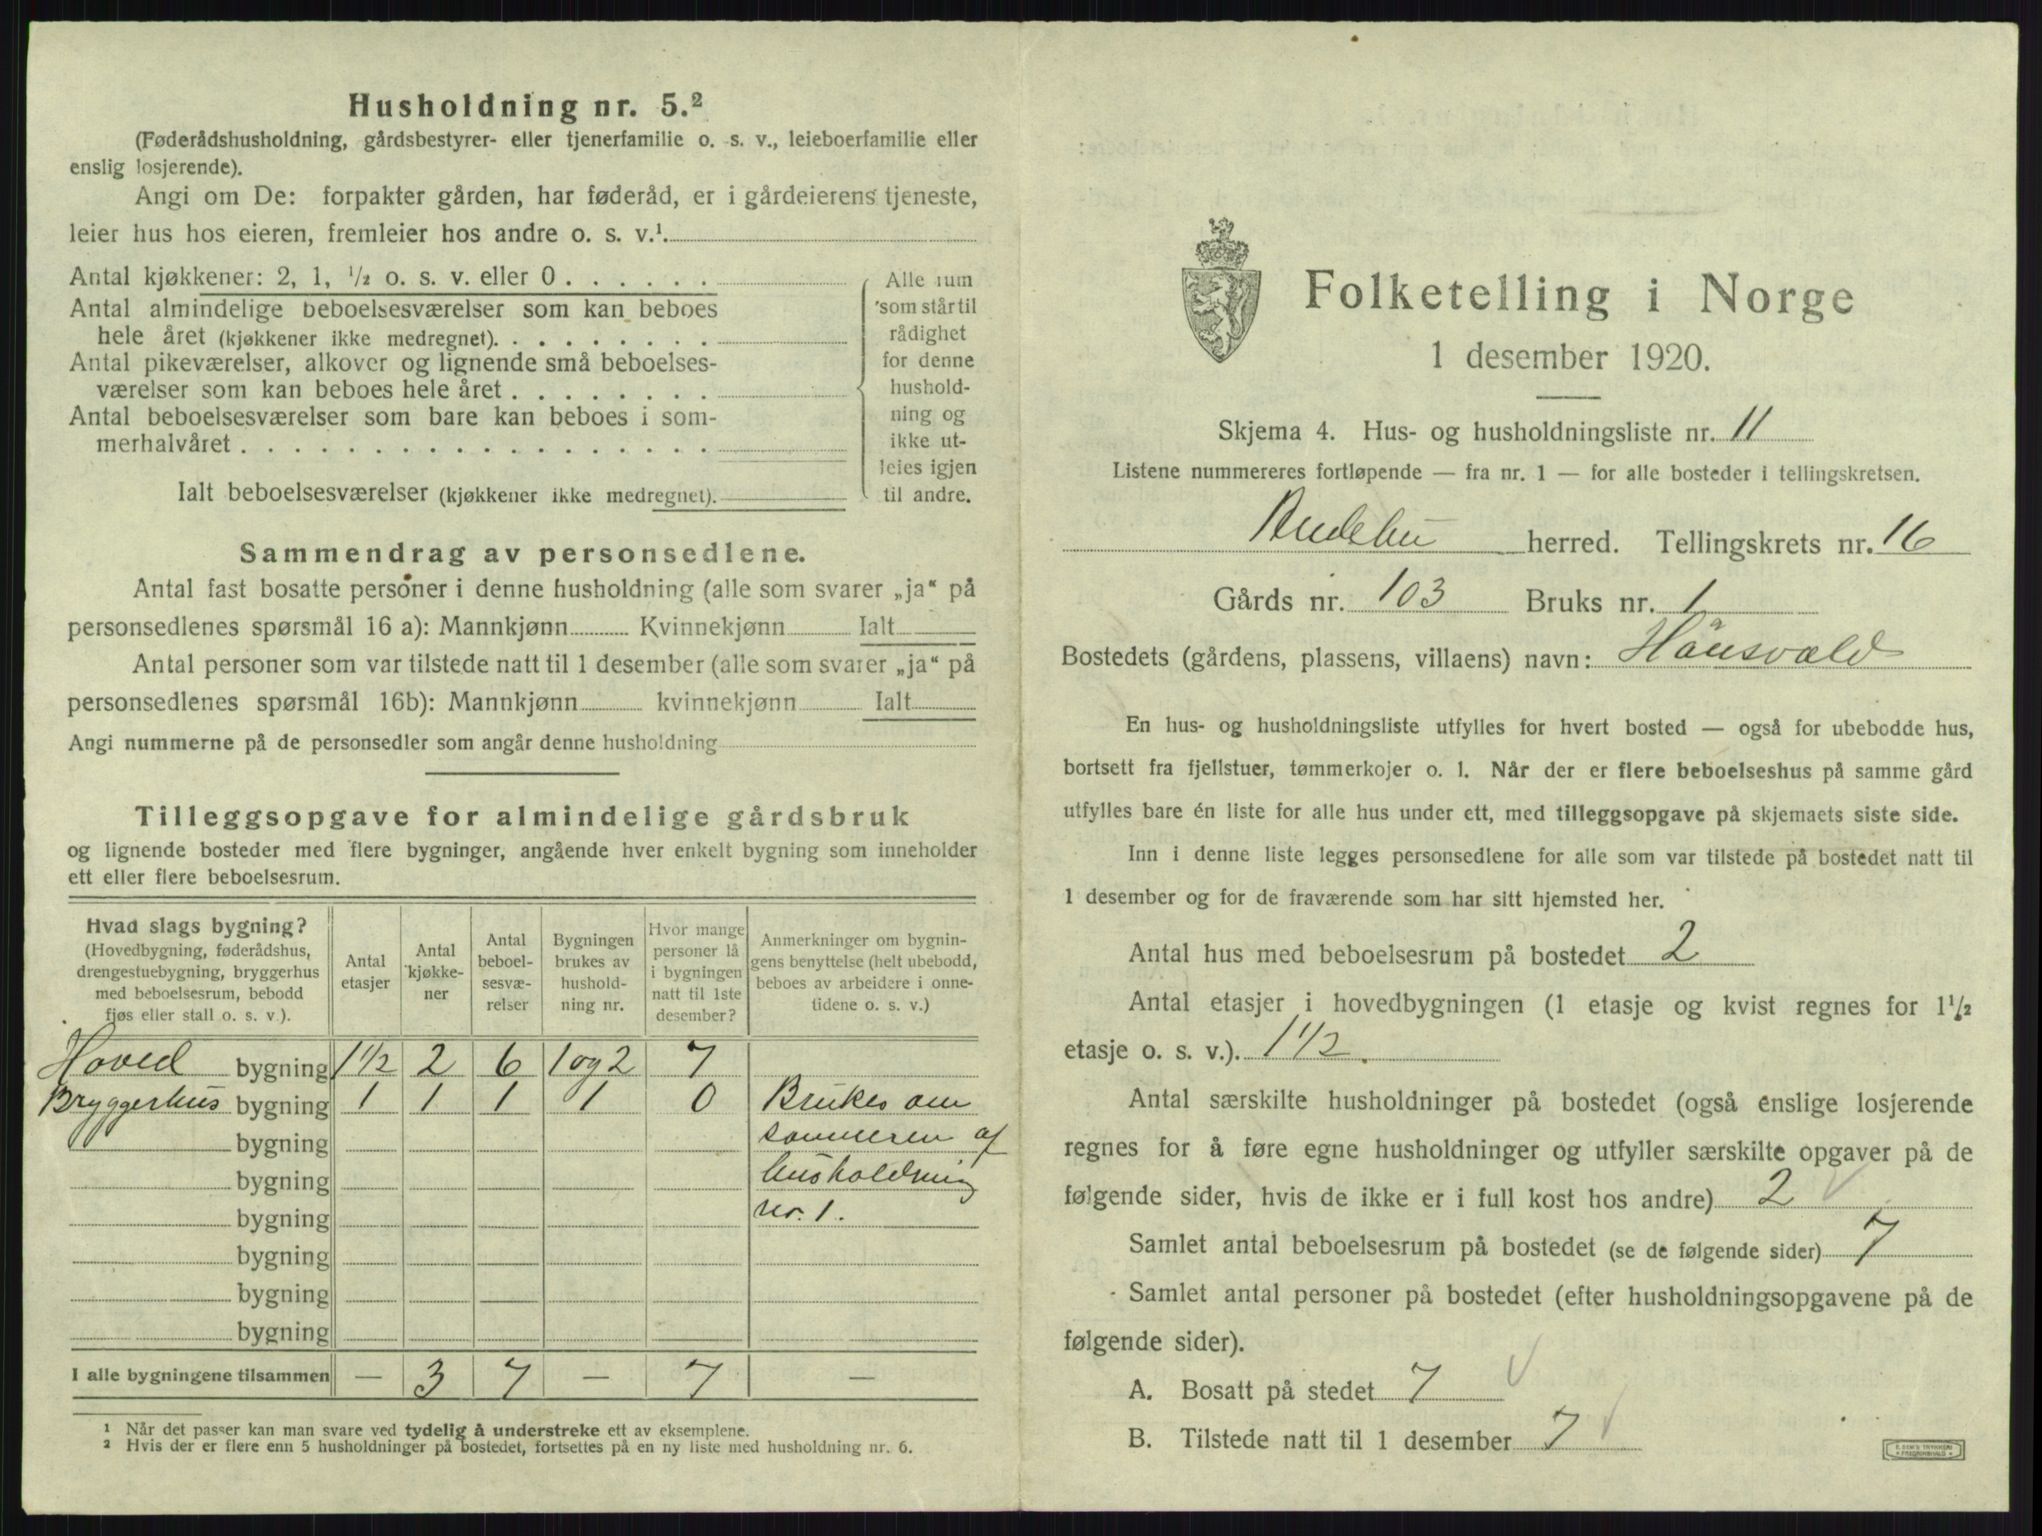 Husholdning nr. 5.²
(Føderådshusholdning, gårdsbestyrer- eller tjenerfamilie o. s. v., leieboerfamilie eller
enslig losjerende).
Angi om De: forpakter gården, har føderåd, er i gårdeierens tjeneste,
leier hus hos eieren, fremleier hos andre o. s. v.¹.
Antal kjøkkener: 2, 1, ½ o. s. v. eller 0 . . . . . .
Antal almindelige beboelsesværelser som kan beboes
hele året (kjøkkener ikke medregnet). . . . . . . . .
Antal pikeværelser, alkover og lignende små beboelses-
værelser som kan beboes hele året . . . . . . . .
Antal beboelsesværelser som bare kan beboes i som-
merhalvåret . . . . . . . . . . . . . . . . . .
Ialt beboelsesværelser (kjøkkener ikke medregnet).
Alle rum
som står til
rådighet
for denne
hushold-
ning og
ikke ut-
leies igjen
til andre.
Sammendrag av personsedlene.
Antal fast bosatte personer i denne husholdning (alle som svarer „ja“ på
personsedlenes spørsmål 16 a): Mannkjønn Kvinnekjønn Ialt
Antal personer som var tilstede natt til 1 desember (alle som svarer „ja“ på
personsedlenes spørsmål 16b): Mannkjønn kvinnekjønn Ialt
Angi nummerne på de personsedler som angår denne husholdning
Tilleggsopgave for almindelige gårdsbruk
og lignende bosteder med flere bygninger, angående hver enkelt bygning som inneholder
ett eller flere beboelsesrum.
Hvad slags bygning?
(Hovedbygning, føderådshus,
drengestuebygning, bryggerhus
med beboelsesrum, bebodd
fjøs eller stall o. s. v.).
Antal
etasjer
Antal
kjøkke-
ner
Antal
beboel-
sesvæ-
relser
Bygningen
brukes av
hushold-
ning nr.
Hvor mange
personer lå
i bygningen
natt til 1ste
desember?
Anmerkninger om bygnin-
gens benyttelse (helt ubebodd,
beboes av arbeidere i onne-
tidene o. s. v.)
Hoved bygning 1½ 2 6 1 og 2 7
Bryggerhus bygning 1 1 1 1 0 Brukes om
bygning sommeren af
bygning husholdning
bygning nr. 1.
bygning
bygning
bygning
I alle bygningene tilsammen — 3 7 — 7 —
¹ Når det passer kan man svare ved tydelig å understreke ett av eksemplene.
² Hvis der er flere enn 5 husholdninger på bostedet, fortsettes på en ny liste med husholdning nr. 6.
Folketelling i Norge
1 desember 1920.
Skjema 4. Hus- og husholdningsliste nr. 11
Listene nummereres fortløpende — fra nr. 1 — for alle bosteder i tellingskretsen.
Andebu herred. Tellingskrets nr. 16
Gårds nr. 103 Bruks nr. 1
Bostedets (gårdens, plassens, villaens) navn: Hånsvald
En hus- og husholdningsliste utfylles for hvert bosted — også for ubebodde hus,
bortsett fra fjellstuer, tømmerkojer o. l. Når der er flere beboelseshus på samme gård
utfylles bare én liste for alle hus under ett, med tilleggsopgave på skjemaets siste side.
Inn i denne liste legges personsedlene for alle som var tilstede på bostedet natt til
1 desember og for de fraværende som har sitt hjemsted her.
Antal hus med beboelsesrum på bostedet 2
Antal etasjer i hovedbygningen (1 etasje og kvist regnes for 1½
etasje o. s. v.). 1½.
Antal særskilte husholdninger på bostedet (også enslige losjerende
regnes for å føre egne husholdninger og utfyller særskilte opgaver på de
følgende sider, hvis de ikke er i full kost hos andre) 2
Samlet antal beboelsesrum på bostedet (se de følgende sider) 7
Samlet antal personer på bostedet (efter husholdningsopgavene på de
følgende sider).
A. Bosatt på stedet 7
B. Tilstede natt til 1 desember 7